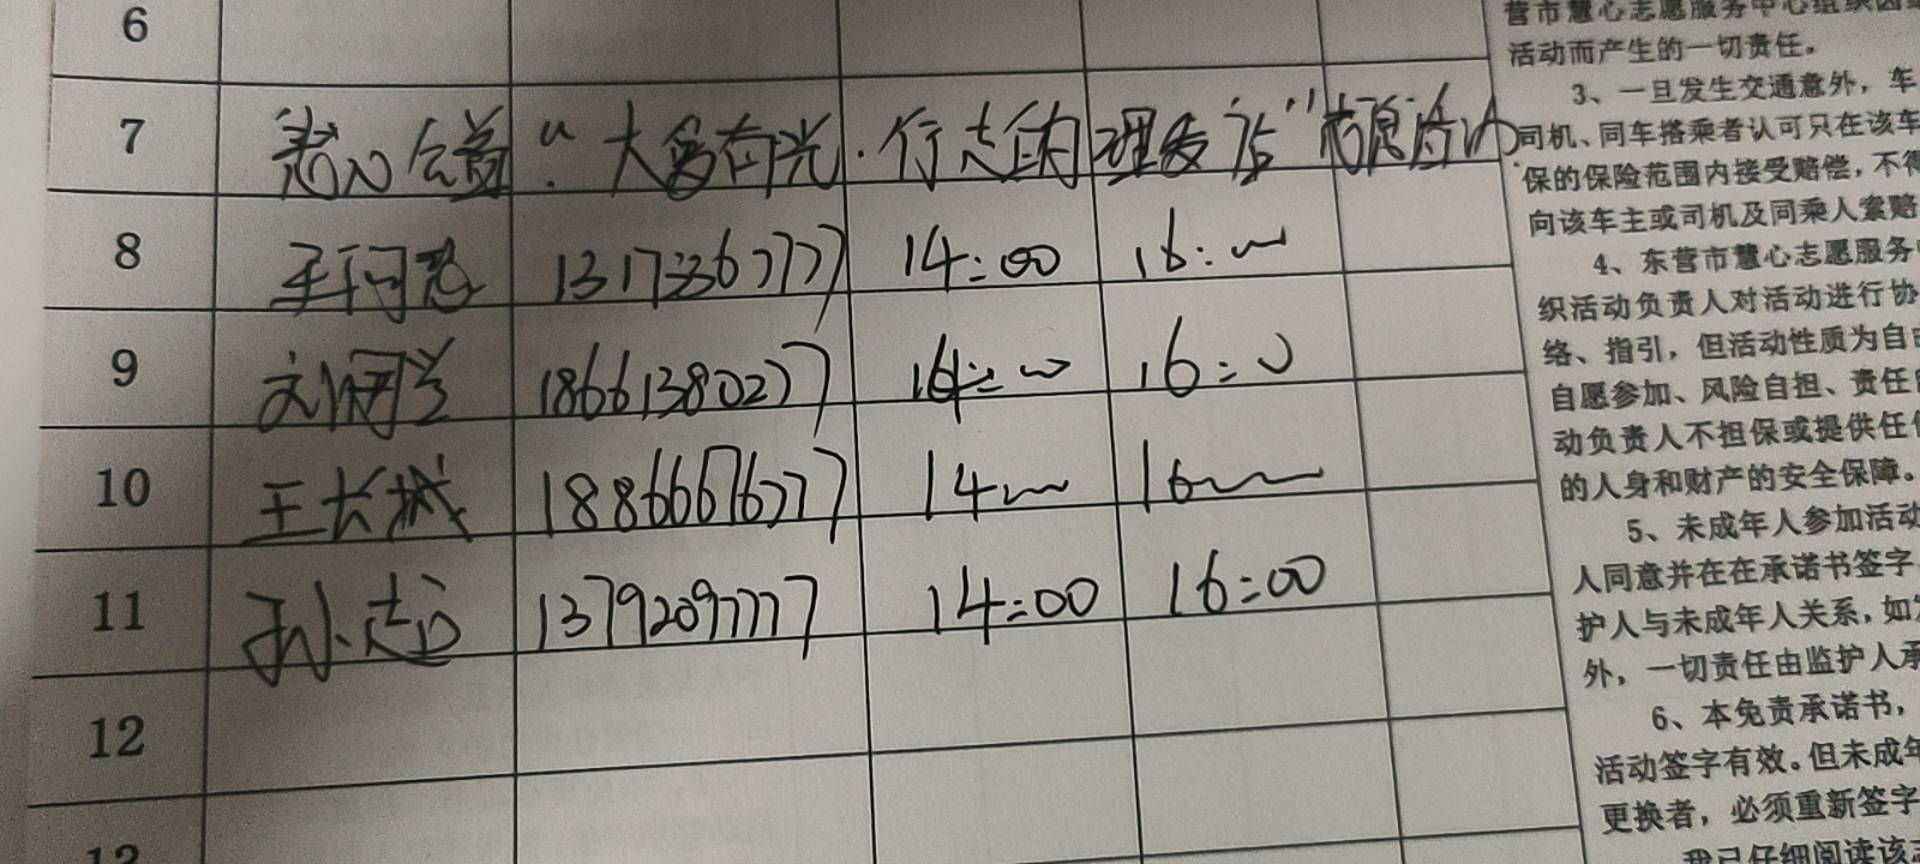 6
7 慧心公益："大爱有光·行走的理发店"志愿活动
8 131736 7777 14:00 16:00
9 刘 18661380277 14:00 16:00
10 王长城 18866676777 14 16
11 孙志 13792097777 14:00 16:00
12
13
营市慧心志愿服务中心组织
活动而产生的一切责任。
3、一旦发生交通意外，车
司机、同车搭乘者认可只在该车
保的保险范围内接受赔偿，不得
向该车主或司机及同乘人索赔
4、东营市慧心志愿服务
织活动负责人对活动进行协
络、指引，但活动性质为自
自愿参加、风险自担、责任
动负责人不担保或提供任
的人身和财产的安全保障。
5、未成年人参加活动
人同意并在在承诺书签字
护人与未成年人关系，如
外，一切责任由监护人承
6、本免责承诺书，
活动签字有效。但未成年
更换者，必须重新签字
我已仔细阅读该